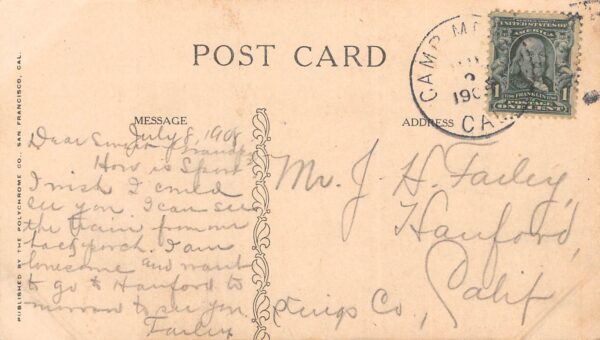 POST CARD
CAMP
190
CA
UNITED STATES OF
AMERICA
1 FRANKLIN 1
POSTAGE
ONE CENT
MESSAGE
ADDRESS
July 8, 1908
Dear
How is
I wish I could
see you. I can see
the train from our
back porch. I am
lonesome and want
to go to Hanford to
morrow to see you.
Failey
Mr. J. H. Failey,
Hanford,
Kings Co., Calif
PUBLISHED BY THE POLYCHROME CO., SAN FRANCISCO, CAL.